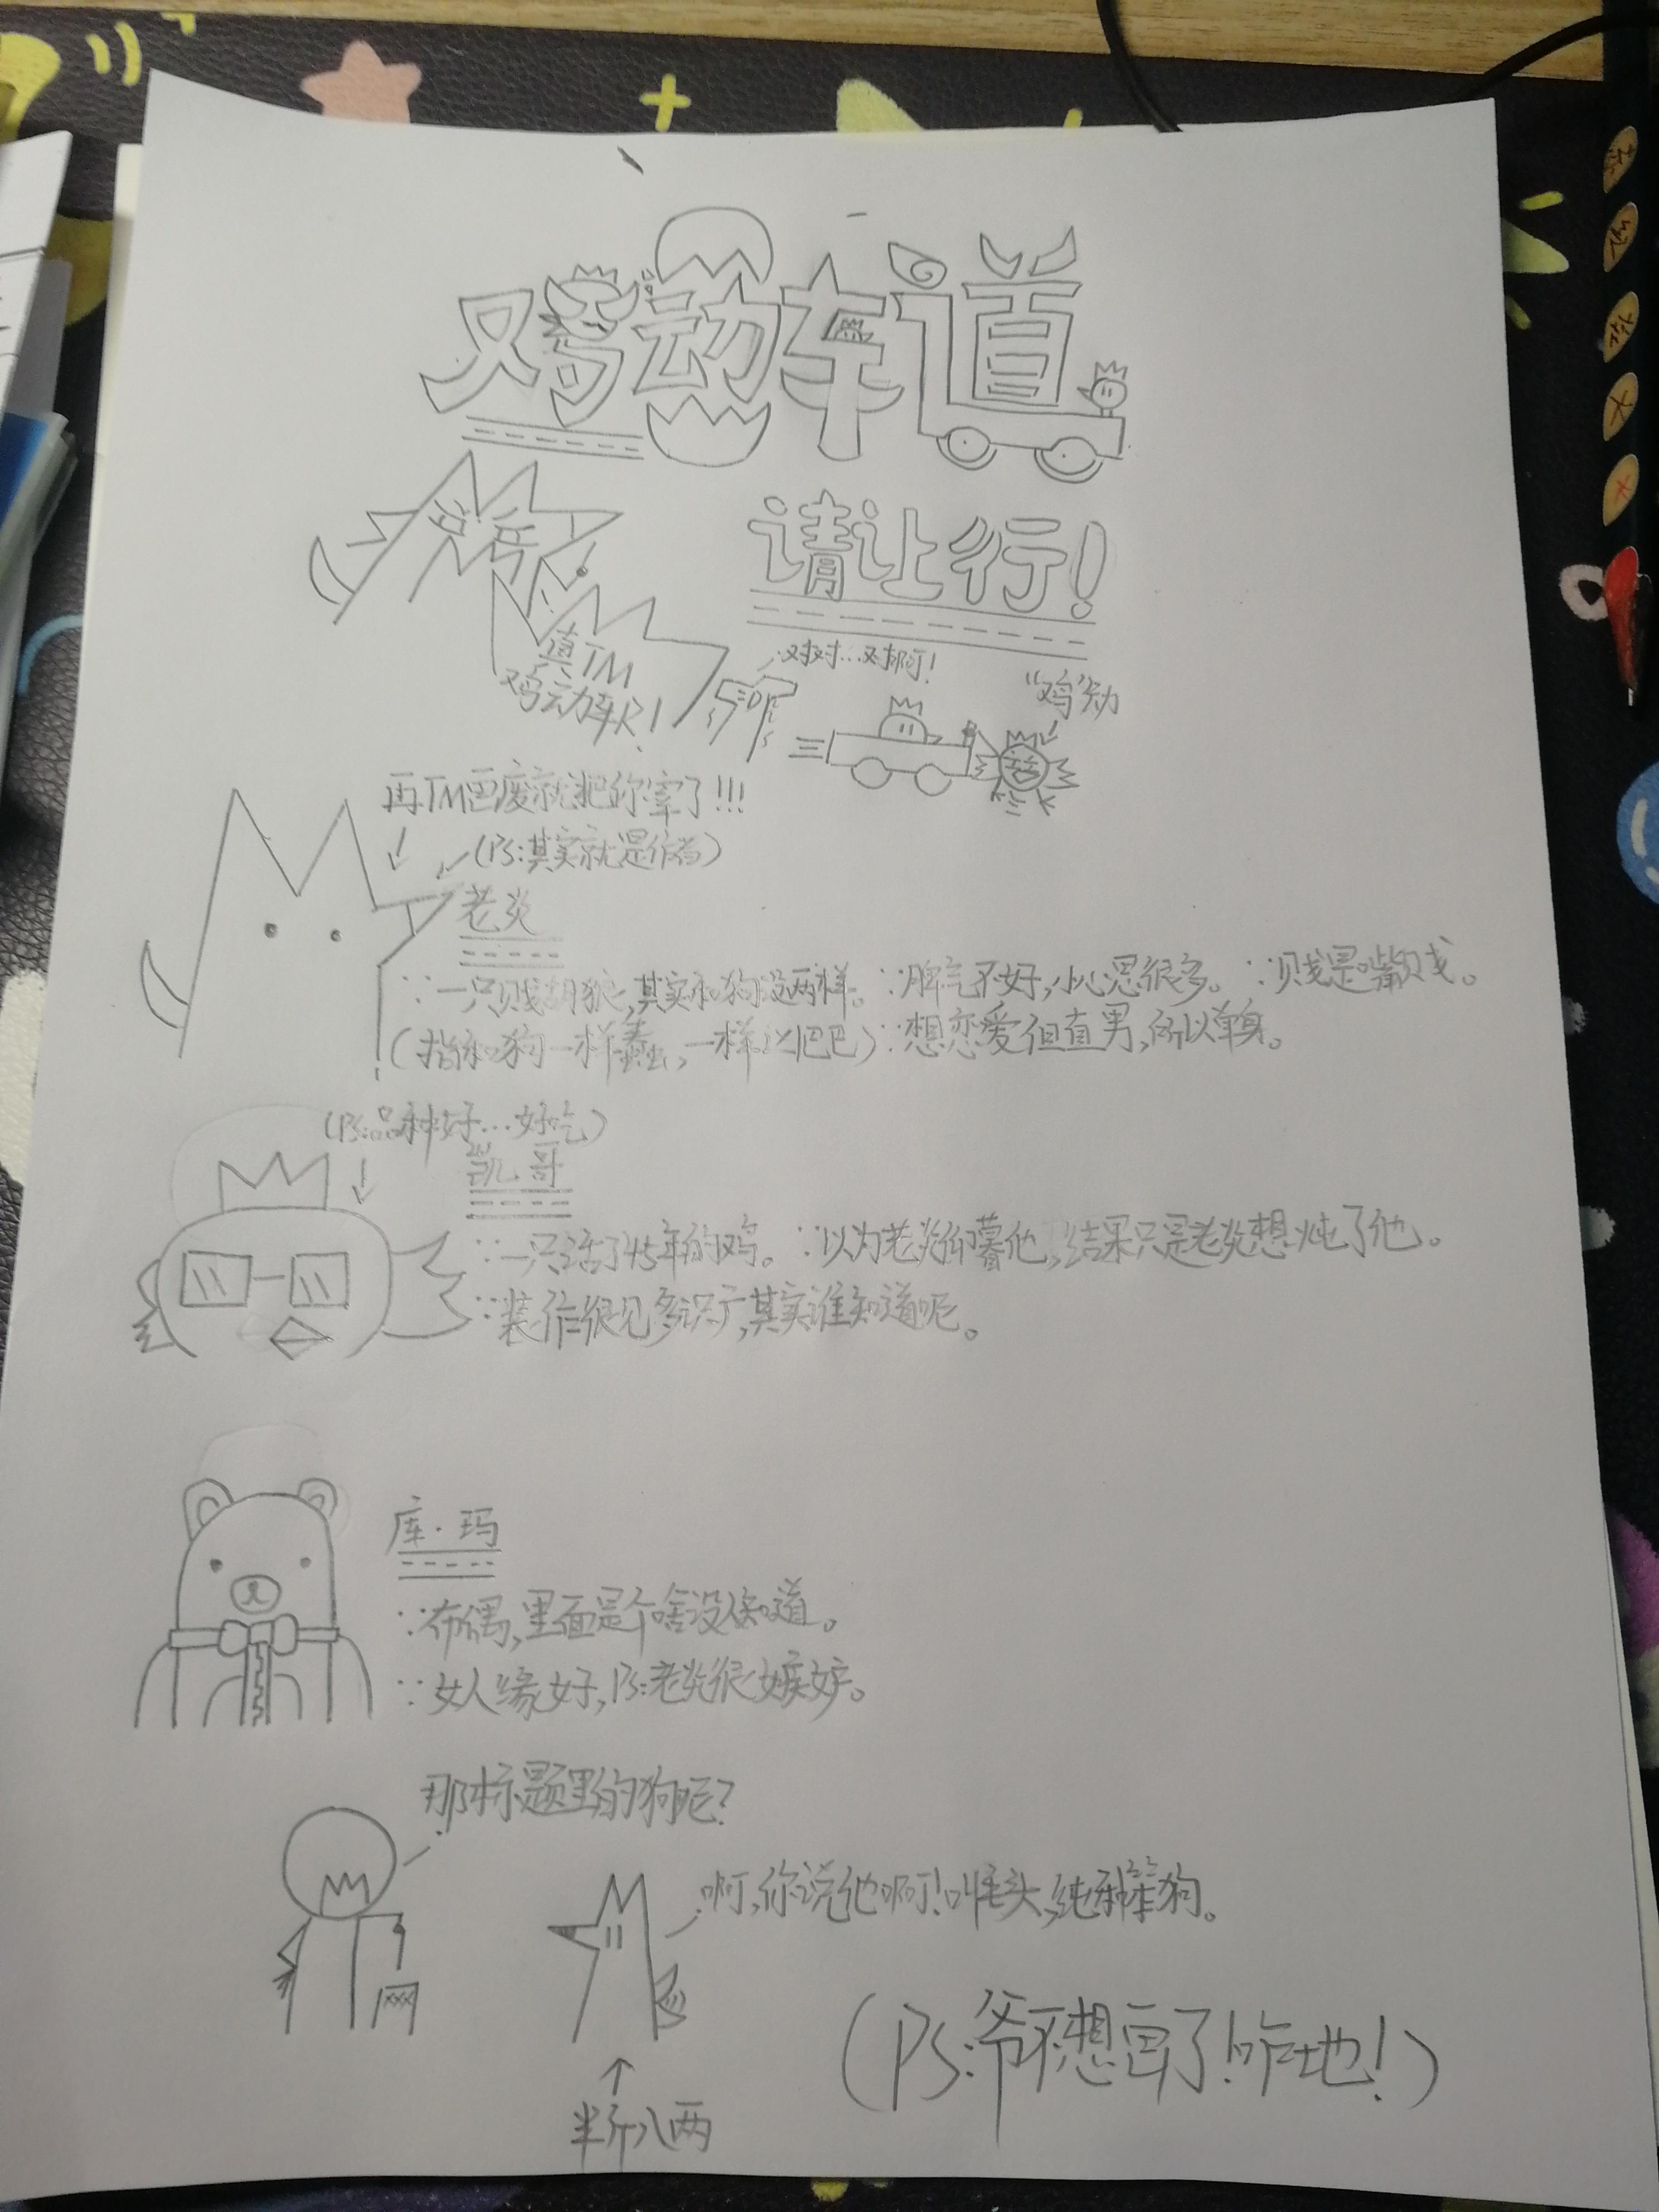 鸡动车道
请让行!
凯哥
真TM
鸡动车尺!
对对…对啊!
“鸡”动
再TM巴废就把你宰了!!!
(Ps:其实就是作者)
老炎
∵一只贱胡狼,其实和狗没两样。∵脾气不好,小心思很多。∵贱是嘴贱。
(指和狗一样蠢,一样 巴巴)∵想恋爱但直男,所以单身。
(Ps:品种好…好吃)
凯哥
∵一只活了45年的鸡。∵以为老炎仰暮他,结果只是老炎想炖了他。
∵装作很见多识广,其实谁知道呢。
库·玛
∵布偶,里面是个啥没人知道。
∵女人缘好,Ps:老炎很嫉妒。
那标题里的狗呢?
啊,你说他啊!叫 头,纯种笨狗。
网
半斤八两
(Ps:爷不想画了!咋地!)